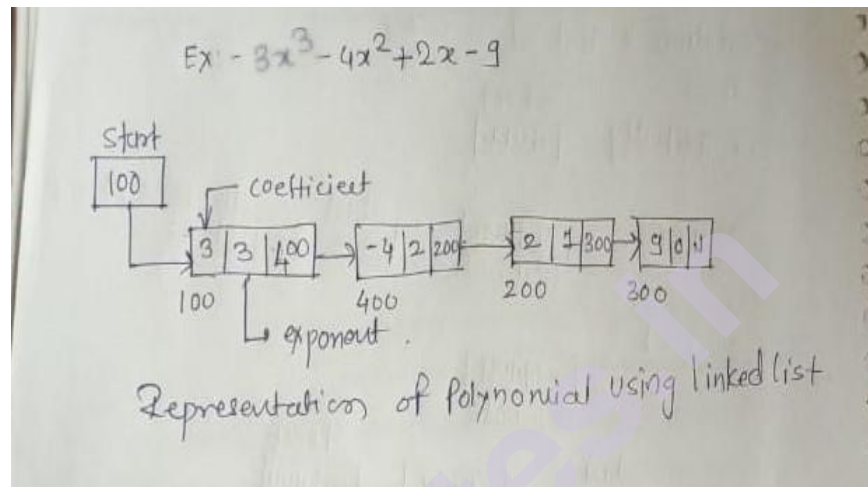 Ex:- 3x³ - 4x² + 2x - 9
Start
100
coefficient
3 | 3 | 400
-4 | 2 | 200
2 | 1 | 300
9 | 0 |
100
400
200
300
exponent.
Representation of Polynomial using linked list